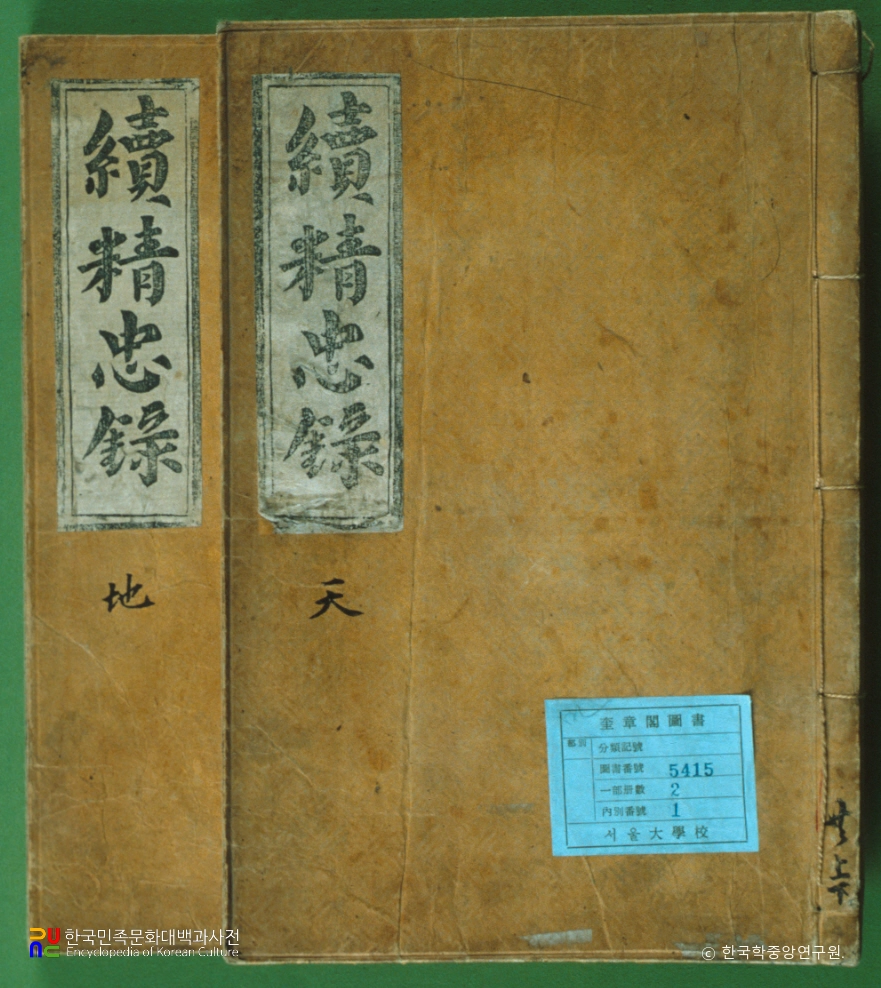 續精忠錄
天
續精忠錄
地
奎章閣圖書
部別
分類記號
圖書番號 5415
一部冊數 2
內別番號 1
서울大學校
上下
한국민족문화대백과사전
Encyclopedia of Korean Culture
ⓒ 한국학중앙연구원.